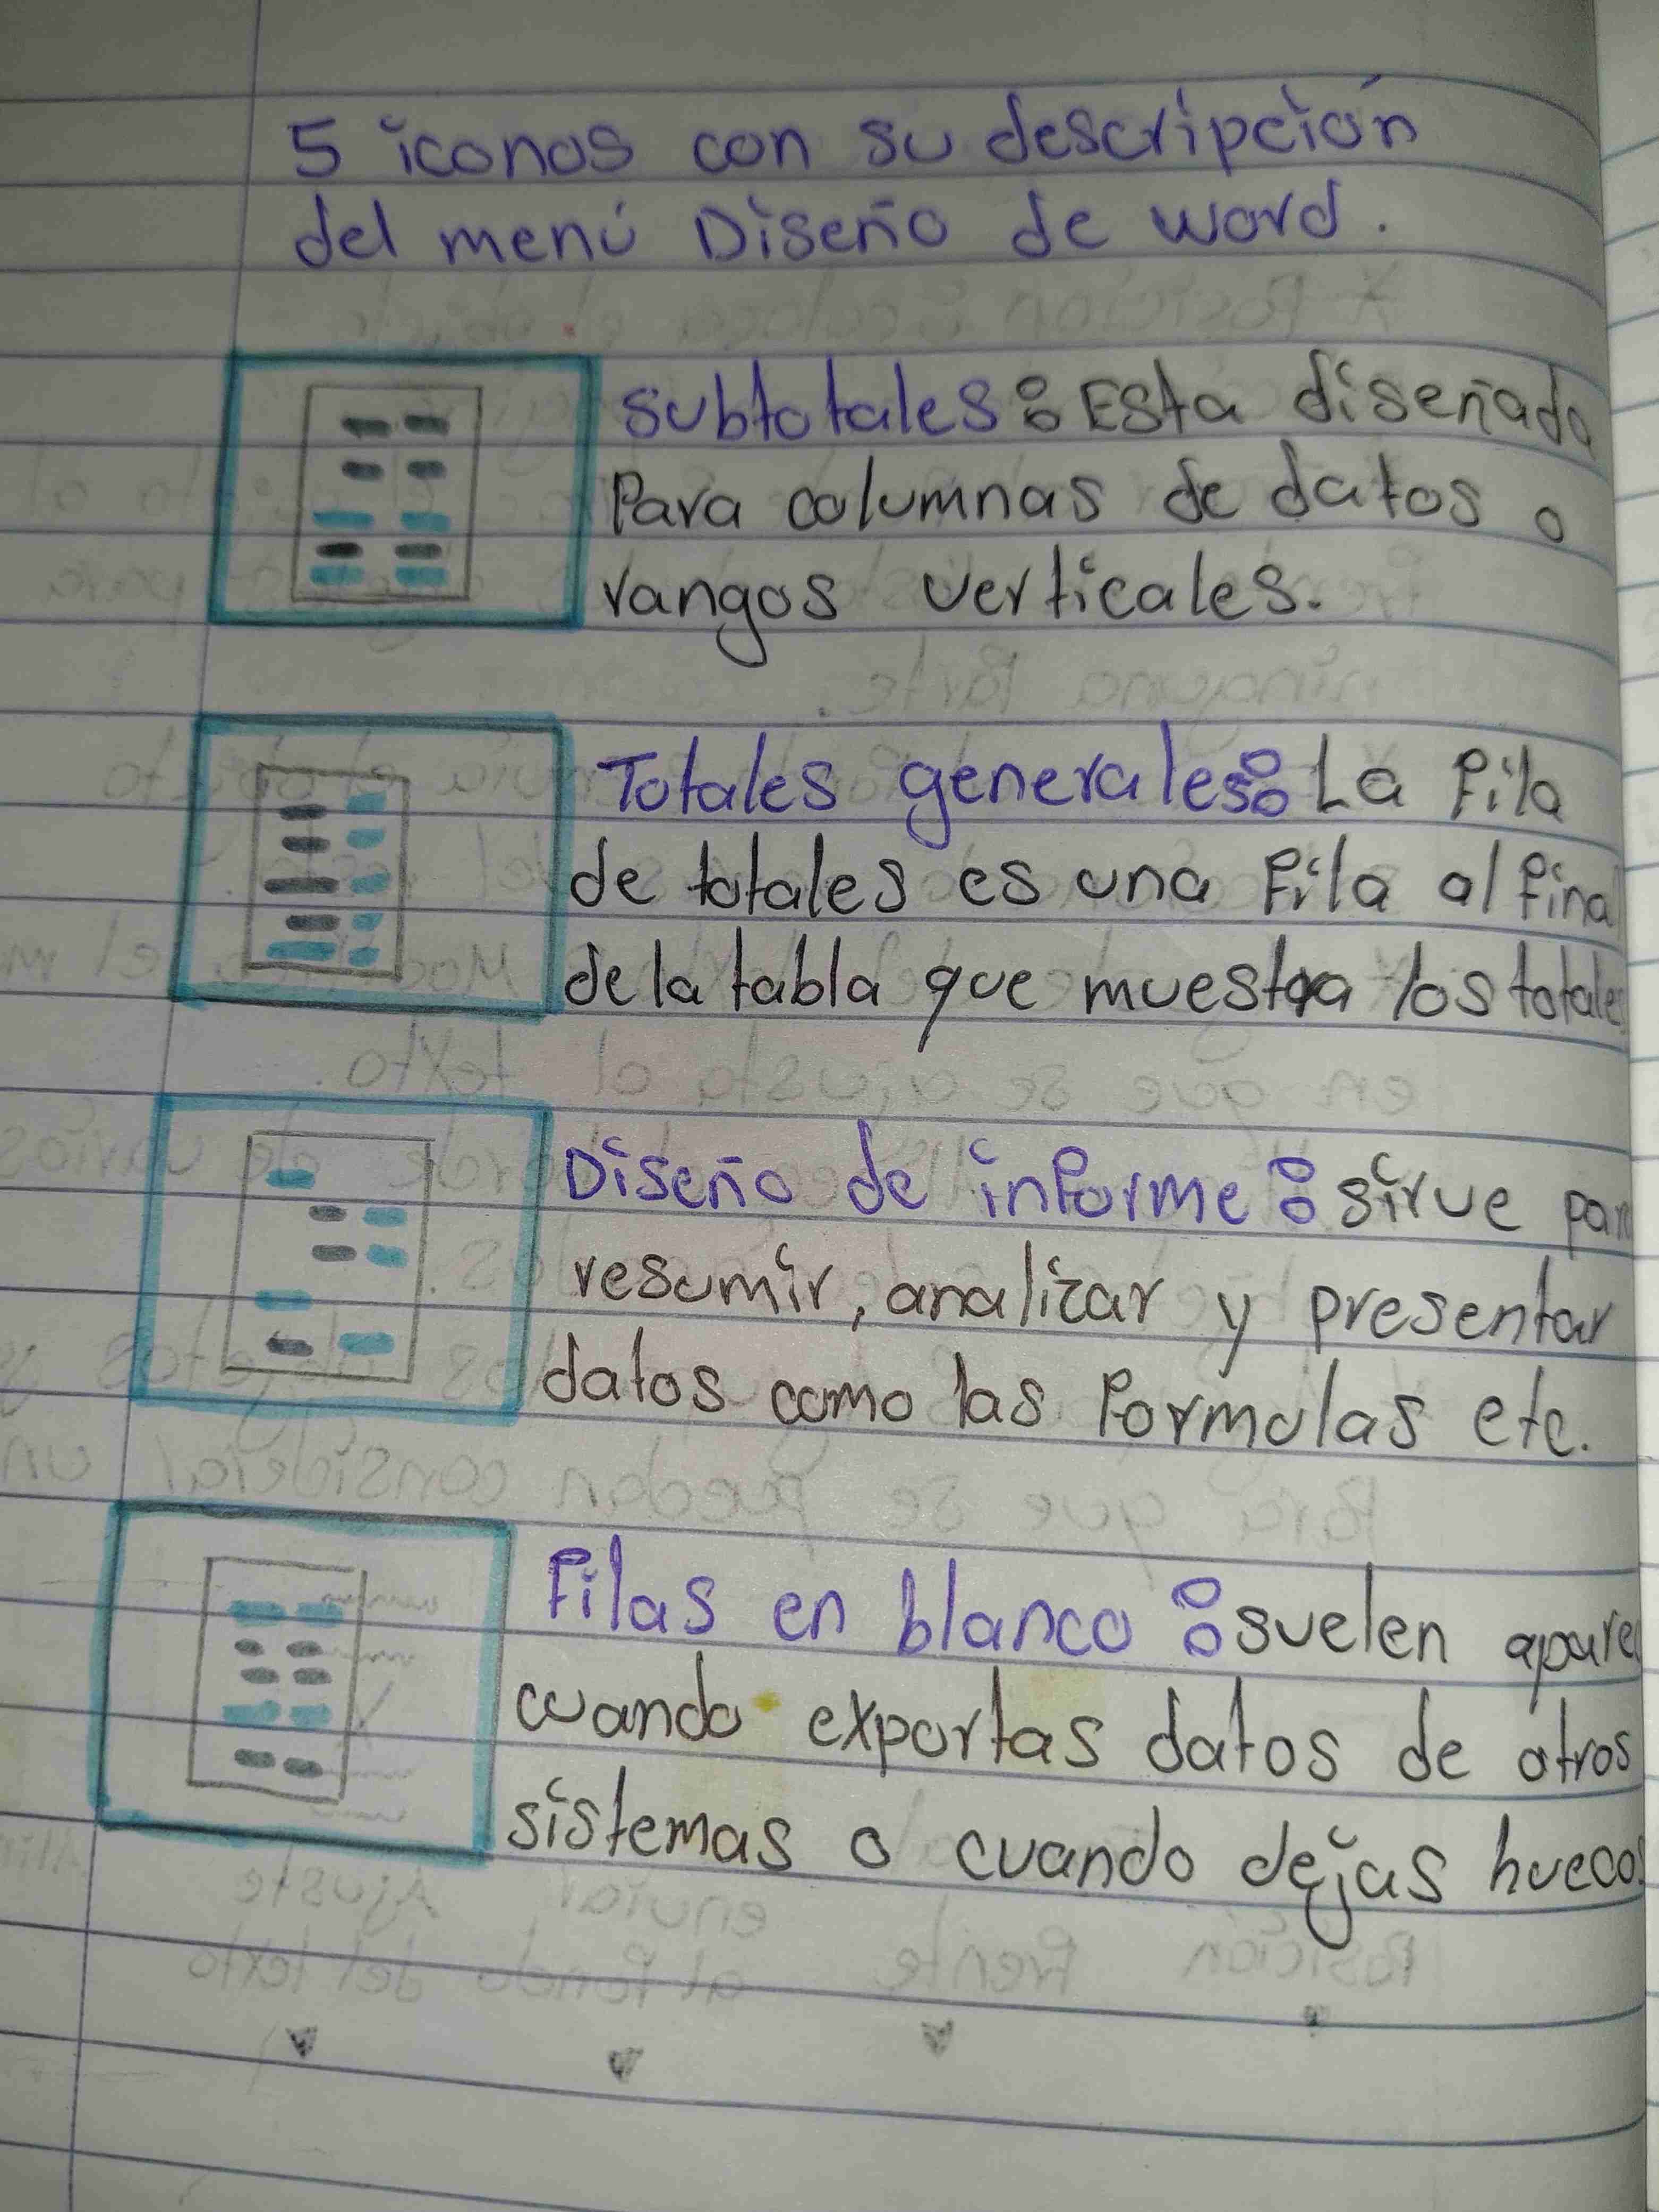 5 iconos con su descripción
del menú Diseño de word.
subtotales: Esta diseñada
Para columnas de datos o
rangos verticales.
Totales generales: La fila
de totales es una fila al final
de la tabla que muestra los totales
Diseño de informe: sirve par
resumir, analizar y presentar
datos como las formulas etc.
Filas en blanco: suelen apare
cuando exportas datos de otros
sistemas o cuando dejas huecos